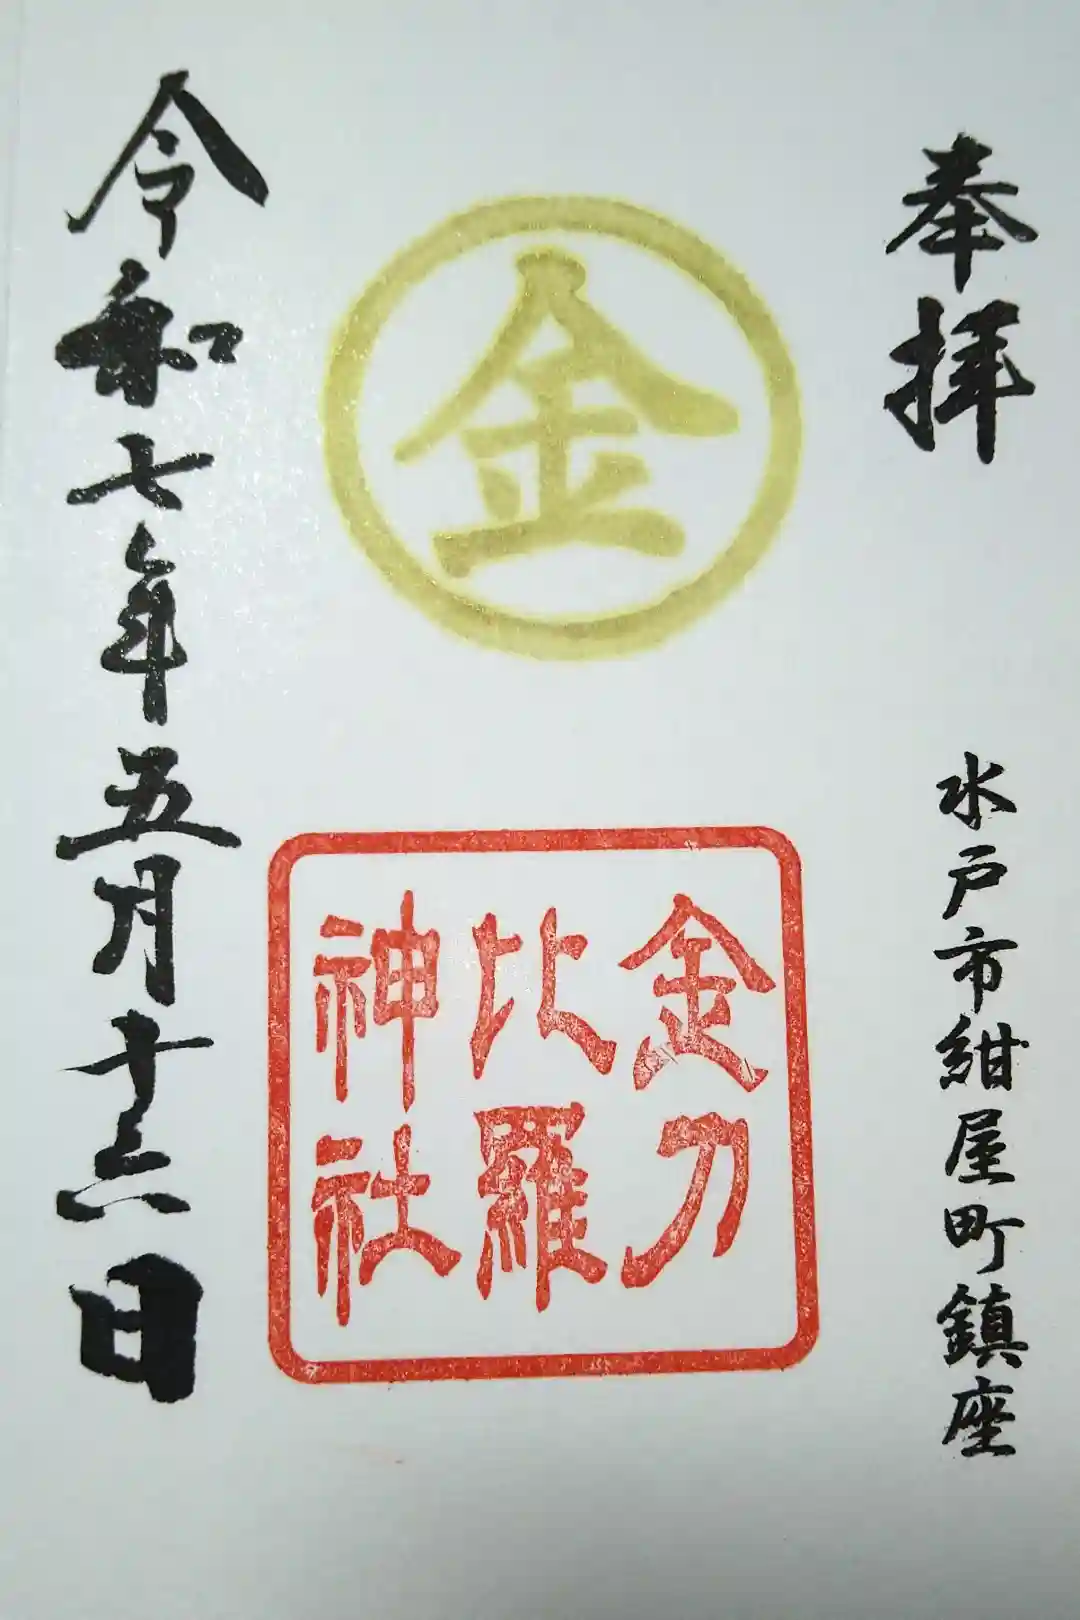 奉拝
水戸市紺屋町鎮座
金
金刀
比羅
神社
令和七年五月十六日